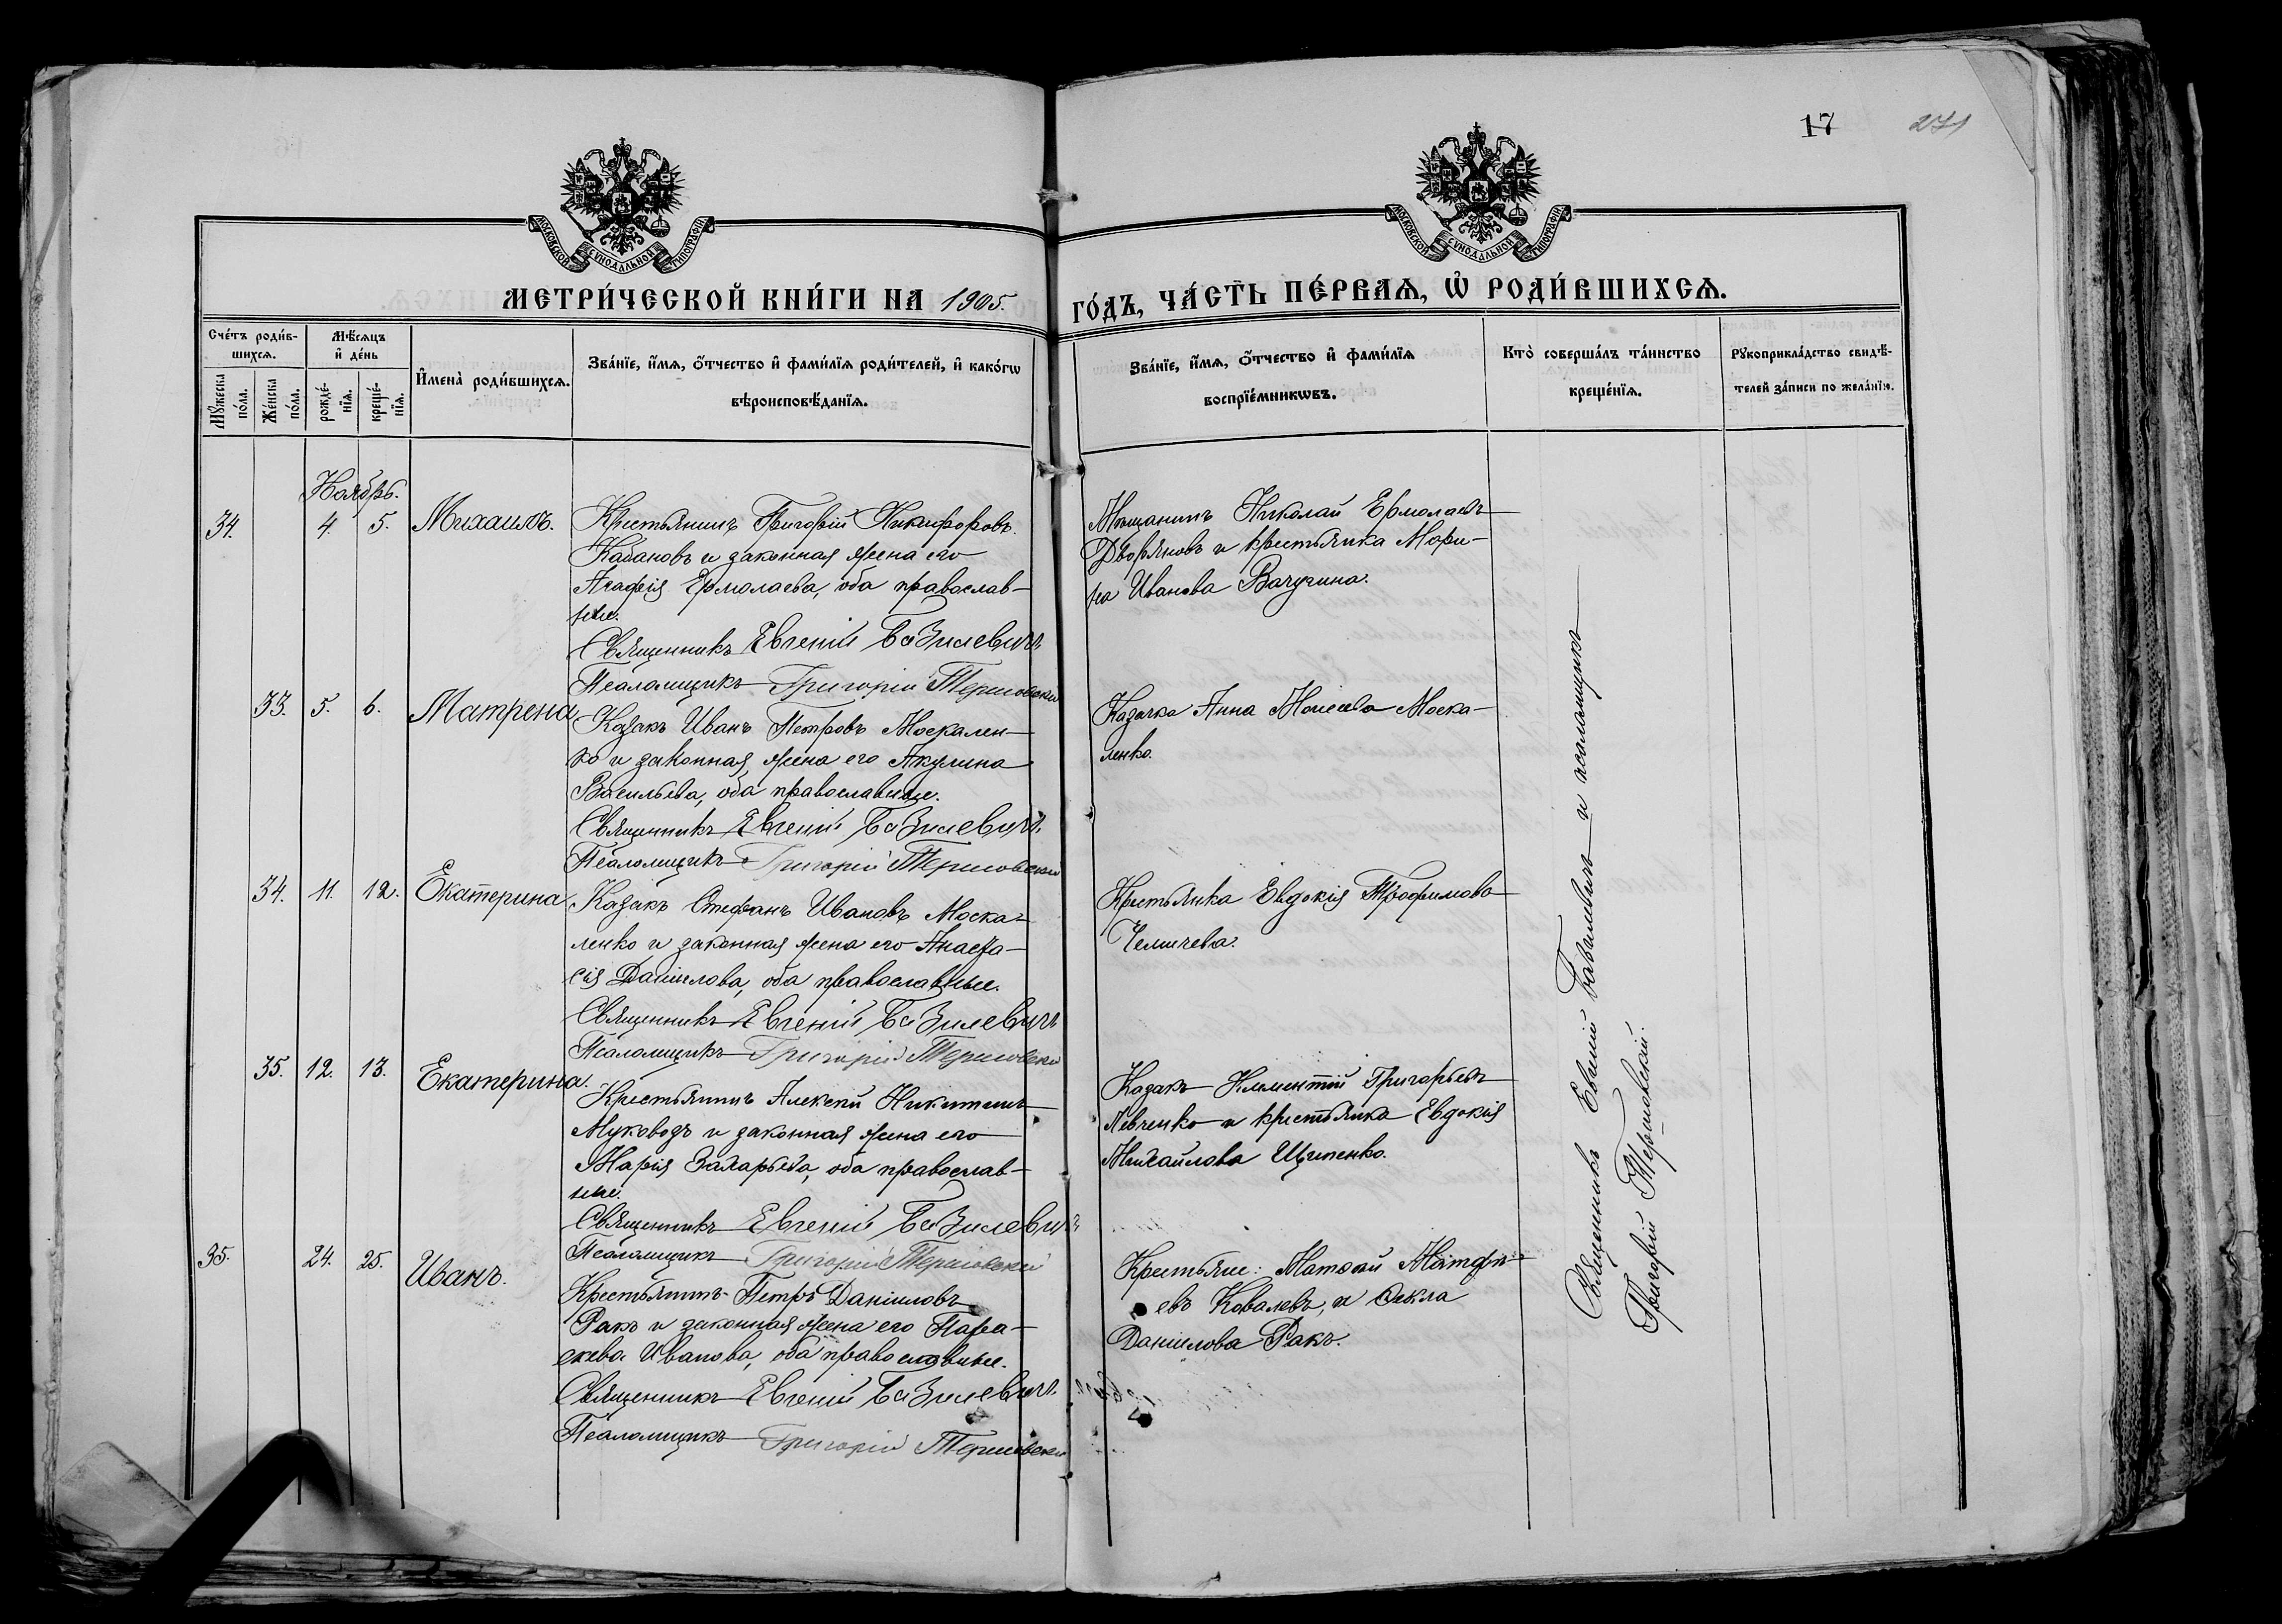 17
271
МОСКОВСКОЙ СѴНОДАЛЬНОЙ ТИПОГРАФІИ
МОСКОВСКОЙ СѴНОДАЛЬНОЙ ТИПОГРАФІИ
МЕТРИ́ЧЕСКОЙ КНИ́ГИ НА 1905.
ГО́ДЪ, ЧА́СТЬ ПЕ́РВАѦ, Ѡ҆ РОДИ́ВШИХСѦ.
Сче́тъ роди́в-
шихсѧ.
Мꙋ́жеска по́ла.
Же́нска по́ла.
Мѣ́сѧцъ
и҆ де́нь
рожде́-
нїѧ.
креще́-
нїѧ.
И҆мена̀ роди́вшихсѧ.
Зва́нїе, и҆́мѧ, ѻ҆́тчество и҆ фами́лїѧ роди́телей, и҆ како́гѡ
вѣроисповѣ́данїѧ.
Зва́нїе, и҆́мѧ, ѻ҆́тчество и҆ фами́лїѧ
воспрїе́мникѡвъ.
Кто̀ соверша́лъ та́инство
креще́нїѧ.
Рꙋкоприкла́дство свидѣ́-
телей за́писи по жела́нїю.
Ноябрь.
34. 4. 5. Михаилъ.
Крестьянинъ Григорій Никифоровъ
Кабановъ и законная жена его
Агафія Ермолаева, оба православ-
ные.
Священникъ Евгеній Базилевичъ
Псаломщикъ Григорій Терновскій
Мѣщанинъ Николай Ермолаевъ
Дворяновъ и крестьянка Мари-
на Иванова Вачугина.
33. 5. 6. Матрена
Казакъ Иванъ Петровъ Москален-
ко и законная жена его Акулина
Васильева, оба православные.
Священникъ Евгеній Базилевичъ
Псаломщикъ Григорій Терновскій
Казачка Анна Моисеева Моска-
ленко.
34. 11. 12. Екатерина
Казакъ Стефанъ Ивановъ Моска-
ленко и законная жена его Анаста-
сія Даніилова, оба православные.
Священникъ Евгеній Базилевичъ
Псаломщикъ Григорій Терновскій
Крестьянка Евдокія Трофимова
Челмчева.
35. 12. 13. Екатерина.
Крестьянинъ Алексѣй Никитинъ
Муковозъ и законная жена его
Марія Захарьева, оба православ-
ные.
Священникъ Евгеній Базилевичъ
Псаломщикъ Григорій Терновскій
Казакъ Климентій Григорьевъ
Левченко и крестьянка Евдокія
Михайлова Щипенко.
35. 24. 25. Иванъ.
Крестьянинъ Петръ Даніиловъ
Ракъ и законная жена его Пара-
скева Иванова, оба православные.
Священникъ Евгеній Базилевичъ
Псаломщикъ Григорій Терновскій
Крестьяне: Матѳей Матѳѣ-
евъ Ковалевъ, и Ѳекла
Даніилова Ракъ.
Священникъ Евгеній Базилевичъ и псаломщикъ
Григорій Терновскій.